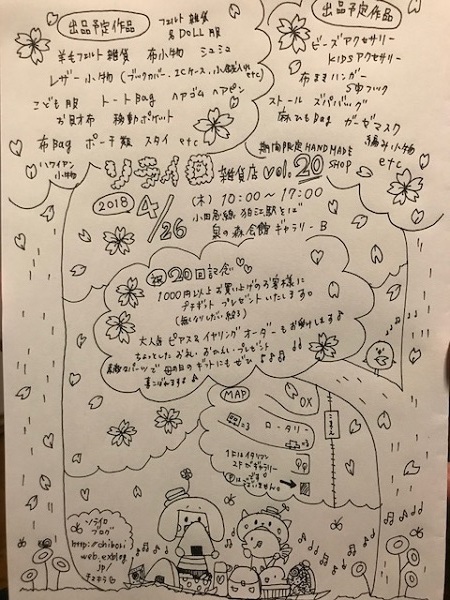 出品予定作品
フェルト雑貨
&DOLL服
羊毛フェルト雑貨 布小物 シュシュ
レザー小物(ブックカバー、ICケース、小銭入れetc)
こども服 トートBag ヘアゴム ヘアピン
お財布 移動ポケット
布Bag ポーチ類 スタイ etc
ハワイアン小物
出品予定作品
ビーズアクセサリー
KIDSアクセサリー
布ままハンガー
S字フック
ストール ズパバッグ
麻ひもBag ガーゼマスク
編み小物
etc
期間限定HANDMADE
SHOP
ソライロ雑貨店vol.20
2018 4/26 (木)10:00〜17:00
小田急線 狛江駅そば
泉の森会館ギャラリーB
祝20回記念
1000円以上お買い上げのお客様に
プチギフト プレゼントいたします。
(無くなりしだい終了)
大人気 ピアス&イヤリング オーダーもお受けします♪
ちょっとしたお礼・お返し・プレゼント
素敵なパーツで母の日のギフトにもぜひ♪♪♪
MAP
OX
ロータリー
こまえ
1Fはイタリアン
2Fがギャラリー
ソライロ
ブログ
http://chibori
web.exblog.
jp/